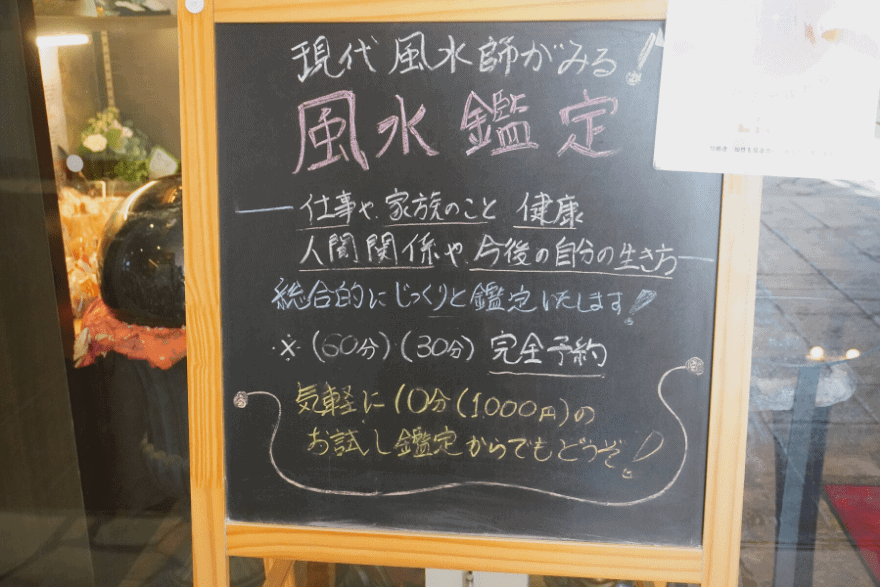 現代風水師がみる!
風水鑑定
仕事や家族のこと 健康
人間関係や今後の自分の生き方
総合的にじっくりと鑑定いたします!
※(60分)(30分)完全予約
気軽に10分(1000円)の
お試し鑑定からでもどうぞ!